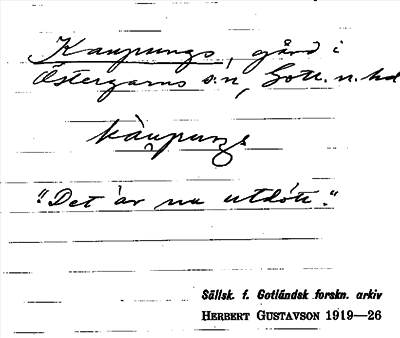 Kaupungs, gård i
Östergarns s:n, Gotl. n. hd
kàupungs
"Det är nu utdött."
Sällsk. f. Gotländsk forskn. arkiv
HERBERT GUSTAVSON 1919—26